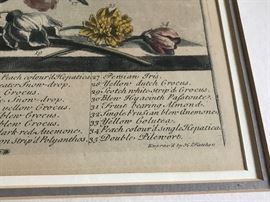 Peach colour'd Hepatica
Snow-drop.
Crocus.
Snow-drop.
yellow Crocus.
blew Crocus.
blew Crocus.
Dark red Anemone.
Strip'd Polyanthos.
27 Persian Iris.
28 Yellow dutch Crocus.
29 Scotch white strip'd Crocus.
30 Blew Hyacinth Passtoute.
31 Fruit bearing Almond.
32 Single Prussian blew Anemones
33 Yellow Colutea.
34 Peach colour'd single Hepatica
35 Double Pilewort.
Engrav'd by H. Fletcher